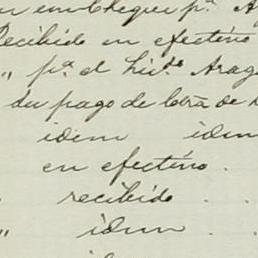 en cheque pª A
Recibido en efectivo
" pª el Licdo Arag
su pago de letra de
idem idem
en efectivo .
recibido . .
" idem . .